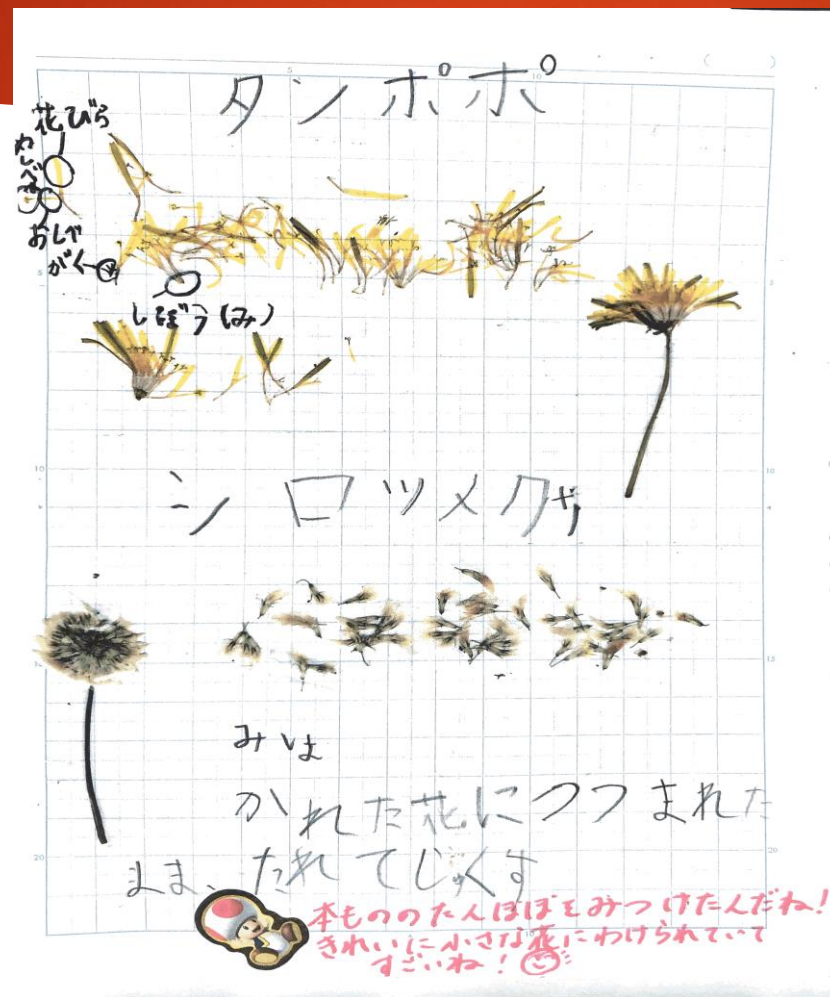 タンポポ
花びら
めしべ
おしべ
がく
しぼう(み)
シロツメクサ
みは
かれた花につつまれた
まま、たれてじゅくす
本もののたんぽぽをみつけたんだね!
きれいに小さな花にわけられていて
すごいね!